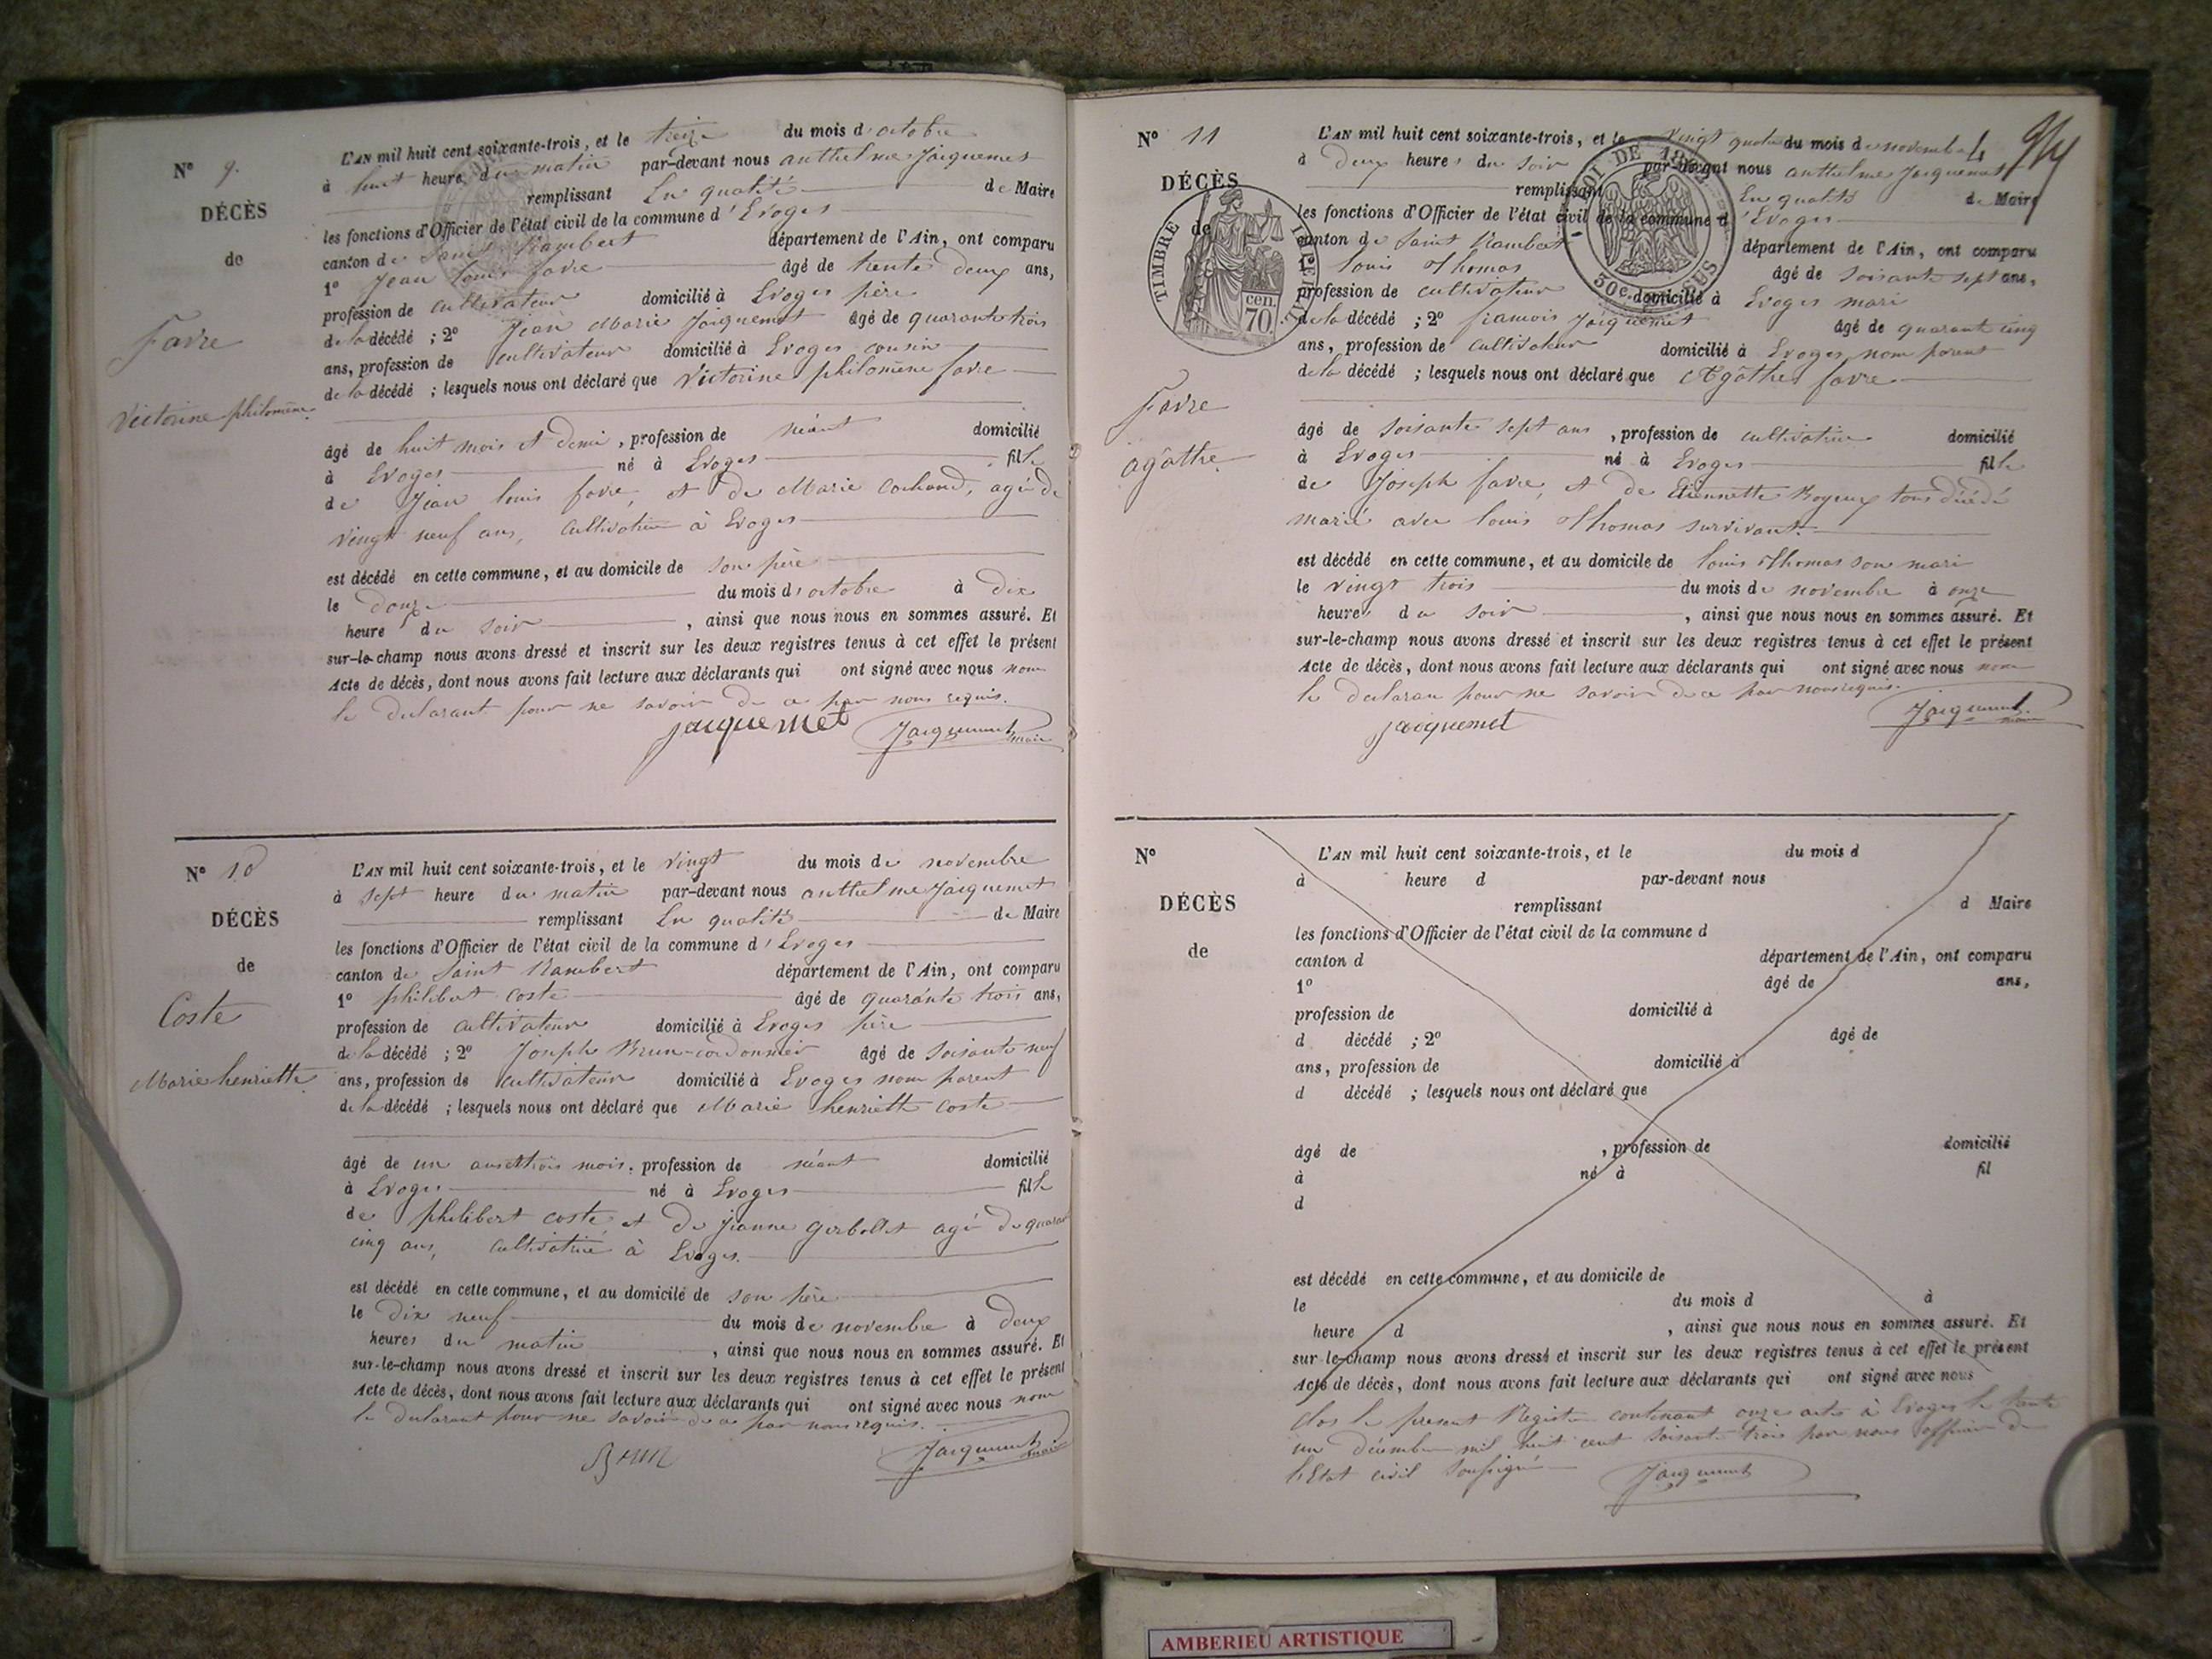 N° 9.
DÉCÈS
de
Favre
Victorine philomène.
L'AN mil huit cent soixante-trois, et le treize du mois d'octobre
à huit heure du matin par-devant nous anthelme Jacquemet
remplissant En qualité de Maire
les fonctions d'Officier de l'état civil de la commune d'Evoges
canton de Saint Rambert département de l'Ain, ont comparu
1° Jean Louis favre âgé de trente deux ans,
profession de cultivateur domicilié à Evoges père
de la décédé ; 2° Jean Marie Jacquemet âgé de quarante trois
ans, profession de cultivateur domicilié à Evoges cousin
de la décédé ; lesquels nous ont déclaré que Victorine philomène favre
âgé de huit mois et demi, profession de néant domicilié
à Evoges né à Evoges fille
de Jean louis favre, et de Marie Cochand, agé de
vingt neuf ans, cultivatrice à Evoges
est décédé en cette commune, et au domicile de son père
le douze du mois d'octobre à dix
heures du soir, ainsi que nous nous en sommes assuré. Et
sur-le-champ nous avons dressé et inscrit sur les deux registres tenus à cet effet le présent
Acte de décès, dont nous avons fait lecture aux déclarants qui ont signé avec nous non
le declarant pour ne savoir de ce par nous requis.
jacquemet Jacquemet maire
N° 10
DÉCÈS
de
Coste
Marie henriette.
L'AN mil huit cent soixante-trois, et le vingt du mois de novembre
à sept heure du matin par-devant nous anthelme Jacquemet
remplissant En qualité de Maire
les fonctions d'Officier de l'état civil de la commune d'Evoges
canton de Saint Rambert département de l'Ain, ont comparu
1° philibert coste âgé de quarante trois ans,
profession de cultivateur domicilié à Evoges père
de la décédé ; 2° Joseph Brun-cordonnier âgé de soisante neuf
ans, profession de cultivateur domicilié à Evoges nom parent
de la décédé ; lesquels nous ont déclaré que Marie henriette coste
âgé de un anset trois mois, profession de néant domicilié
à Evoges né à Evoges fille
de philibert coste et de Jeanne Gerbollet agé de quarante
cinq ans, cultivatrice à Evoges.
est décédé en cette commune, et au domicile de son père
le dix neuf du mois de novembre à deux
heures du matin, ainsi que nous nous en sommes assuré. Et
sur-le-champ nous avons dressé et inscrit sur les deux registres tenus à cet effet le présent
Acte de décès, dont nous avons fait lecture aux déclarants qui ont signé avec nous non
le declarant pour ne savoir de ce par nous requis.
Brun Jacquemet maire
N° 11
DÉCÈS
de
TIMBRE IMPÉRIAL
70 cen.
LOI DE 1862
30c. EN SUS
Favre
agâthe.
L'AN mil huit cent soixante-trois, et le vingt quatre du mois de novembre
à deux heures du soir par-devant nous anthelme Jacquemet
remplissant En qualité de Maire
les fonctions d'Officier de l'état civil de la commune d'Evoges
canton de Saint Rambert département de l'Ain, ont comparu
1° louis Thomas âgé de soisante sept ans,
profession de cultivateur domicilié à Evoges mari
de la décédé ; 2° françois Jacquemet âgé de quarante cinq
ans, profession de cultivateur domicilié à Evoges nom parent
de la décédé ; lesquels nous ont déclaré que Agâthe favre
âgé de soisante sept ans, profession de cultivatrice domicilié
à Evoges né à Evoges fille
de Joseph favre, et de Etiennette Royeux tous décédé
marié avec louis Thomas survivant.
est décédé en cette commune, et au domicile de louis Thomas son mari
le vingt trois du mois de novembre à onze
heures du soir, ainsi que nous nous en sommes assuré. Et
sur-le-champ nous avons dressé et inscrit sur les deux registres tenus à cet effet le présent
Acte de décès, dont nous avons fait lecture aux déclarants qui ont signé avec nous non
le declaran pour ne savoir de ce par nous requis.
jacquemet Jacquemet maire
N°
DÉCÈS
de
L'AN mil huit cent soixante-trois, et le du mois d
à heure d par-devant nous
remplissant d Maire
les fonctions d'Officier de l'état civil de la commune d
canton d département de l'Ain, ont comparu
1° âgé de ans,
profession de domicilié à
d décédé ; 2° âgé de
ans, profession de domicilié à
d décédé ; lesquels nous ont déclaré que
âgé de , profession de domicilié
à né à fil
d
est décédé en cette commune, et au domicile de
le du mois d à
heure d , ainsi que nous nous en sommes assuré. Et
sur-le-champ nous avons dressé et inscrit sur les deux registres tenus à cet effet le présent
Acte de décès, dont nous avons fait lecture aux déclarants qui ont signé avec nous
clos le present Registre contenant onze actes à Evoges le trente
un décembre mil huit cent soisante trois par nous officier de
l'Etat civil soussigné Jacquemet
AMBERIEU ARTISTIQUE